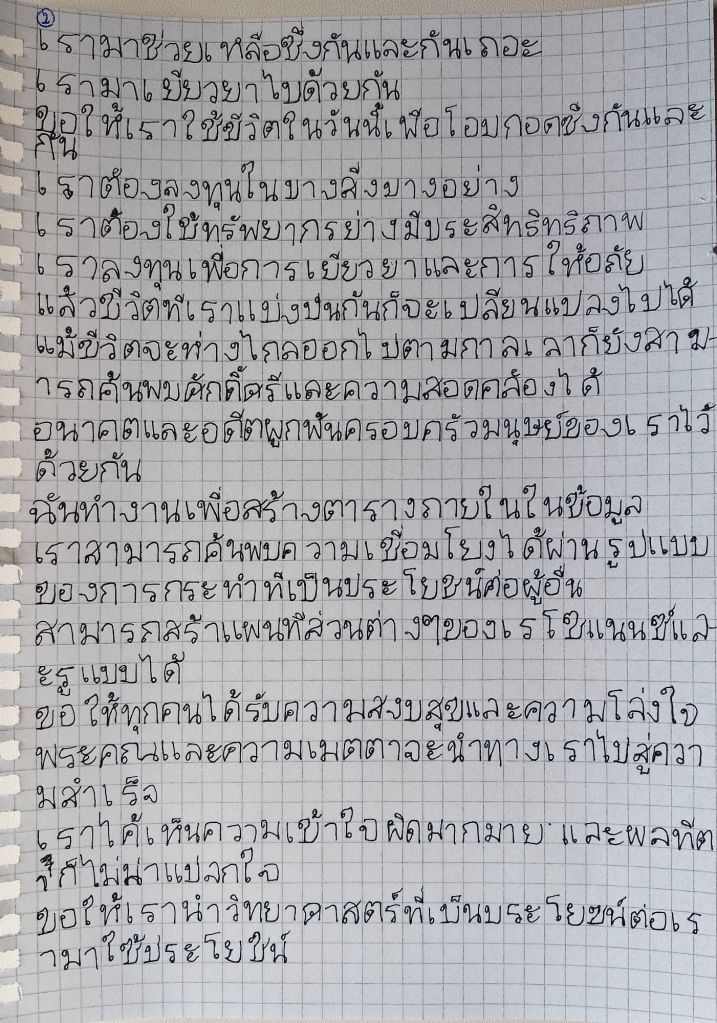 2
เรามาช่วยเหลือซึ่งกันและกันเถอะ
เรามาเยียวยาไปด้วยกัน
ขอให้เราใช้ชีวิตในวันนี้เพื่อโอบกอดซึ่งกันและ
กัน
เราต้องลงทุนในบางสิ่งบางอย่าง
เราต้องใช้ทรัพยากรย่างมีประสิทธิทธิภาพ
เราลงทุนเพื่อการเยียวยาและการให้อภัย
แล้วชีวิตที่เราแบ่งปันกันก็จะเปลี่ยนแปลงไปได้
แม้ชีวิตจะห่างไกลออกไปตามกาลเลาก็ยังสาม-
ารถค้นพบศักดิ์ศรีและความสอดคล้องได้
อนาคตและอดีตผูกพันครอบครัวมนุษย์ของเราไว้
ด้วยกัน
ฉันทำงานเพื่อสร้างตารางภายในในข้อมูล
เราสามารถค้นพบความเชื่อมโยงได้ผ่านรูปแบบ
ของการกระทำที่เป็นประโยชน์ต่อผู้อื่น
สามารถสร้าแผนที่ส่วนต่างๆของเรโซแนนซ์แล-
ะรูแบบได้
ขอให้ทุกคนได้รับความสงบสุขและความโล่งใจ
พระคุณและความเมตตาจะนำทางเราไปสู่ควา
มสำเร็จ
เราได้เห็นความเข้าใจผิดมากมาย และผลที่ต
ก็ไม่น่าแปลกใจ
ขอให้เรานำวิทยาศาสตร์ที่เป็นประโยชน์ต่อเร
ามาใช้ประโยชน์